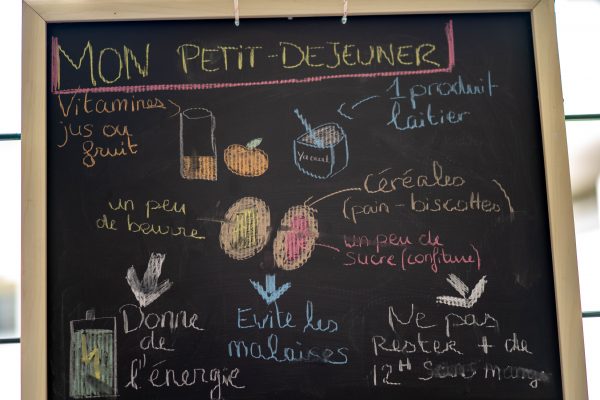 MON PETIT-DEJEUNER
Vitamines
jus ou
fruit
1 produit
laitier
un peu
de beurre
Céréales
(pain-biscottes)
un peu de
sucre (confiture)
Donne
de
l'énergie
Evite les
malaises
Ne pas
Rester + de
12H sans